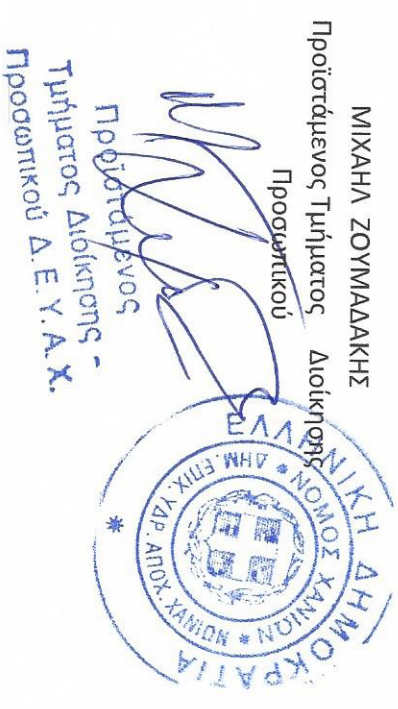 ΜΙΧΑΗΛ ΖΟΥΜΑΔΑΚΗΣ
Προϊστάμενος Τμήματος Διοίκησης
Προσωπικού
Προϊστάμενος
Τμήματος Διοίκησης -
Προσωπικού Δ.Ε.Υ.Α.Χ.
ΕΛΛΗΝΙΚΗ ΔΗΜΟΚΡΑΤΙΑ
ΝΟΜΟΣ ΧΑΝΙΩΝ * ΔΗΜ. ΕΠΙΧ. ΥΔΡ. ΑΠΟΧ. ΧΑΝΙΩΝ *